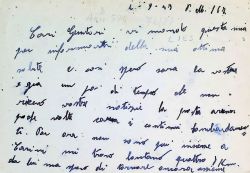 2-9-43 P.M. 167
Cari Genitori vi mando questa mia
per informarvi della mia ottima
salute e. così spero sara la vostra
e gia un po' di tempo che non
ricevo vostre notizie la posta arriva
poche volte causa i continui bombardamen
ti. Per ora non sono più insieme a
Carini mi trovo lontano quattro Km
da lui ma spero di tornare ancora insieme